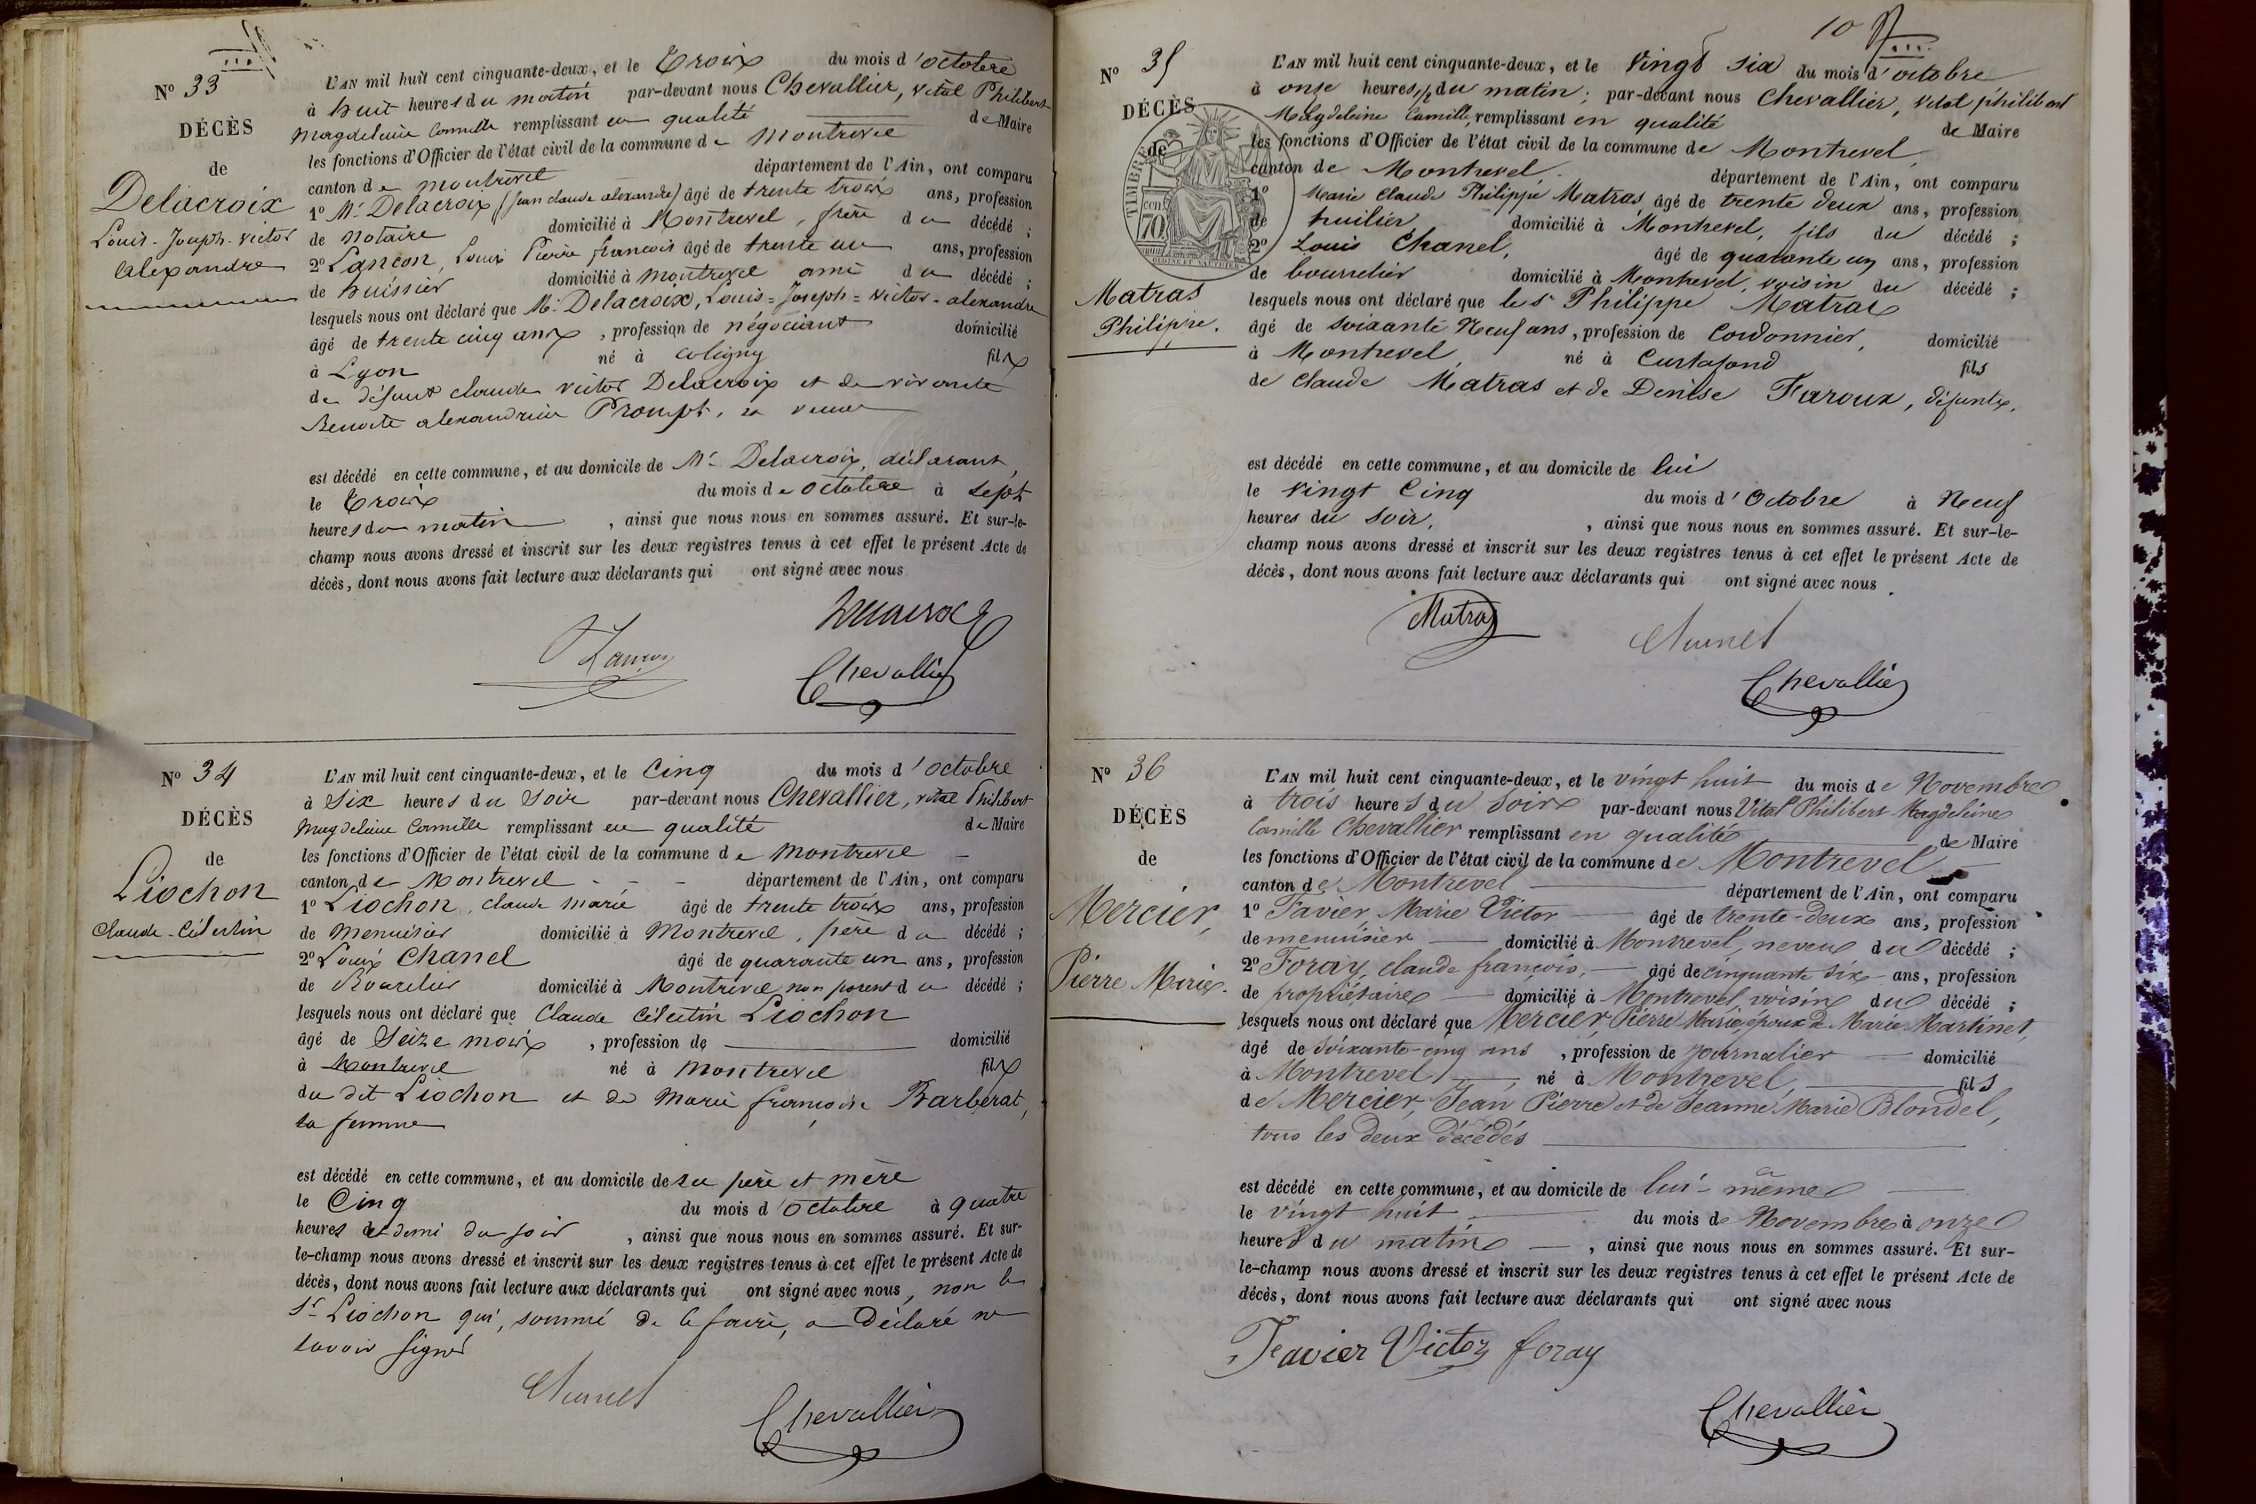 N° 33
DÉCÈS
de
Delacroix
Louis-Joseph-Victor
Alexandre
L'AN mil huit cent cinquante-deux, et le Troix du mois d'octobre
à huit heures du matin par-devant nous Chevallier, vital Philibert
Magdeleine Camille remplissant en qualité de Maire
les fonctions d'Officier de l'état civil de la commune de Montrevel
canton de Montrevel département de l'Ain, ont comparu
1° Mr Delacroix (jean claude alexandre) âgé de trente troix ans, profession
de Notaire domicilié à Montrevel, frère du décédé ;
2° Lançon, Louis Pierre françois âgé de trente un ans, profession
de huissier domicilié à Montrevel ami du décédé ;
lesquels nous ont déclaré que Mr Delacroix, Louis=Joseph=Victor-alexandre
âgé de trente cinq anx, profession de négociant domicilié
à Lyon né à Coligny filx
de défunt claude victor Delacroix et de vivante
Benoite alexandrine Prompt, sa veuve
est décédé en cette commune, et au domicile de Mr Delacroix, déclarant,
le Troix du mois de octobre à sept
heures du matin, ainsi que nous nous en sommes assuré. Et sur-le-
champ nous avons dressé et inscrit sur les deux registres tenus à cet effet le présent Acte de
décès, dont nous avons fait lecture aux déclarants qui ont signé avec nous
Delacroix
Lançon
Chevallier
N° 34
DÉCÈS
de
Liochon
Claude-Célestin
L'AN mil huit cent cinquante-deux, et le Cinq du mois d'octobre
à Six heures du Soir par-devant nous Chevallier, vital Philibert
Magdeleine Camille remplissant en qualité de Maire
les fonctions d'Officier de l'état civil de la commune de Montrevel
canton de Montrevel département de l'Ain, ont comparu
1° Liochon, claude marie âgé de trente troix ans, profession
de Menuisier domicilié à Montrevel, père du décédé ;
2° Louis Chanel âgé de quarante un ans, profession
de Bourelier domicilié à Montrevel non parent du décédé ;
lesquels nous ont déclaré que Claude Célestin Liochon
âgé de Seize moix, profession de domicilié
à Montrevel né à Montrevel filx
du dit Liochon et de Marie françoise Barberat,
sa femme
est décédé en cette commune, et au domicile de ses père et mère
le Cinq du mois d'octobre à quatre
heures et demi du soir, ainsi que nous nous en sommes assuré. Et sur-
le-champ nous avons dressé et inscrit sur les deux registres tenus à cet effet le présent Acte de
décès, dont nous avons fait lecture aux déclarants qui ont signé avec nous, non le
Sr Liochon qui, sommé de le faire, a Déclaré ne
savoir signer
Chanel
Chevallier
10
N° 35
DÉCÈS
de
Matras
Philippe.
L'AN mil huit cent cinquante-deux, et le vingt six du mois d'octobre
à onze heures 1/2 du matin; par-devant nous Chevallier, vital philibert
Magdeleine Camille, remplissant en qualité de Maire
les fonctions d'Officier de l'état civil de la commune de Montrevel,
canton de Montrevel. département de l'Ain, ont comparu
1° Marie Claude Philippe Matras âgé de trente deux ans, profession
de huilier domicilié à Montrevel, fils du décédé ;
2° Louis Chanel, âgé de quarante un ans, profession
de bourrelier domicilié à Montrevel, voisin du décédé ;
lesquels nous ont déclaré que le Sr Philippe Matras
âgé de soixante Neuf ans, profession de Cordonnier, domicilié
à Montrevel, né à Curtafond fils
de Claude Matras et de Denise Faroux, défuntx.
est décédé en cette commune, et au domicile de lui
le vingt Cinq du mois d'Octobre à Neuf
heures du soir, ainsi que nous nous en sommes assuré. Et sur-le-
champ nous avons dressé et inscrit sur les deux registres tenus à cet effet le présent Acte de
décès, dont nous avons fait lecture aux déclarants qui ont signé avec nous.
Matras
Chanel
Chevallier
N° 36
DÉCÈS
de
Mercier,
Pierre Marie.
L'AN mil huit cent cinquante-deux, et le vingt huit du mois de Novembre
à trois heures du soir par-devant nous Vital Philibert Magdeleine
Camille Chevallier remplissant en qualité de Maire
les fonctions d'Officier de l'état civil de la commune de Montrevel
canton de Montrevel département de l'Ain, ont comparu
1° Favier, Marie Victor âgé de trente-deux ans, profession
de menuisier domicilié à Montrevel, neveu du décédé ;
2° Foray, claude françois, âgé de cinquante six ans, profession
de propriétaire domicilié à Montrevel, voisin du décédé ;
lesquels nous ont déclaré que Mercier Pierre Marie, époux de Marie Martinet,
âgé de soixante-cinq ans, profession de journalier domicilié
à Montrevel, né à Montrevel, fils
de Mercier, Jean Pierre et de Jeanne Marie Blondel,
tous les deux décédés
est décédé en cette commune, et au domicile de lui-même
le vingt huit du mois de Novembre à onze
heures du matin, ainsi que nous nous en sommes assuré. Et sur-
le-champ nous avons dressé et inscrit sur les deux registres tenus à cet effet le présent Acte de
décès, dont nous avons fait lecture aux déclarants qui ont signé avec nous
Favier Victor foray
Chevallier